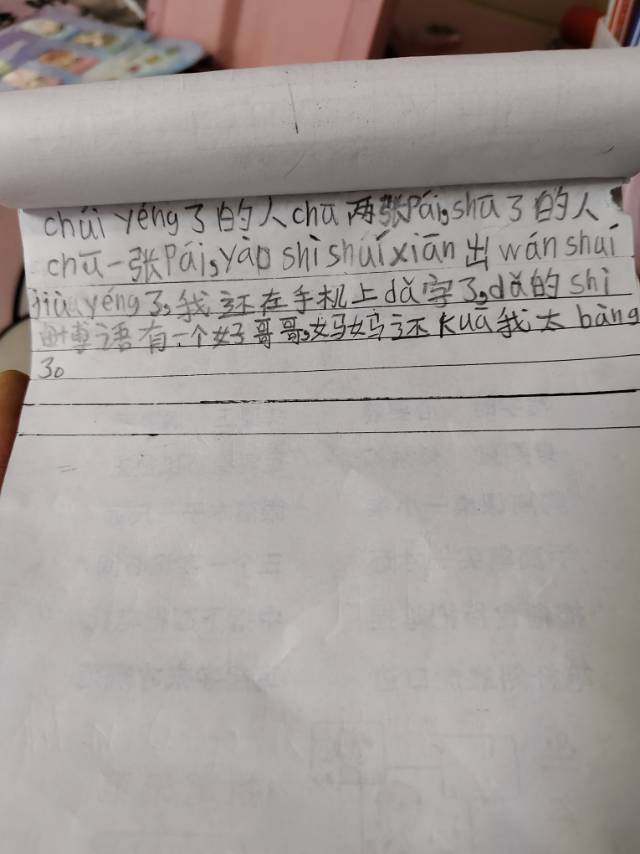 chúi yéng了的人chū两张Pái,shū了的人
chū一张Pái,yào shì shuí xiān出wán shuí
jiùu yéng了,我还在手机上dǎ字了,dǎ的shì
博语有一个好哥哥,妈妈还kuā我太bàng
了。